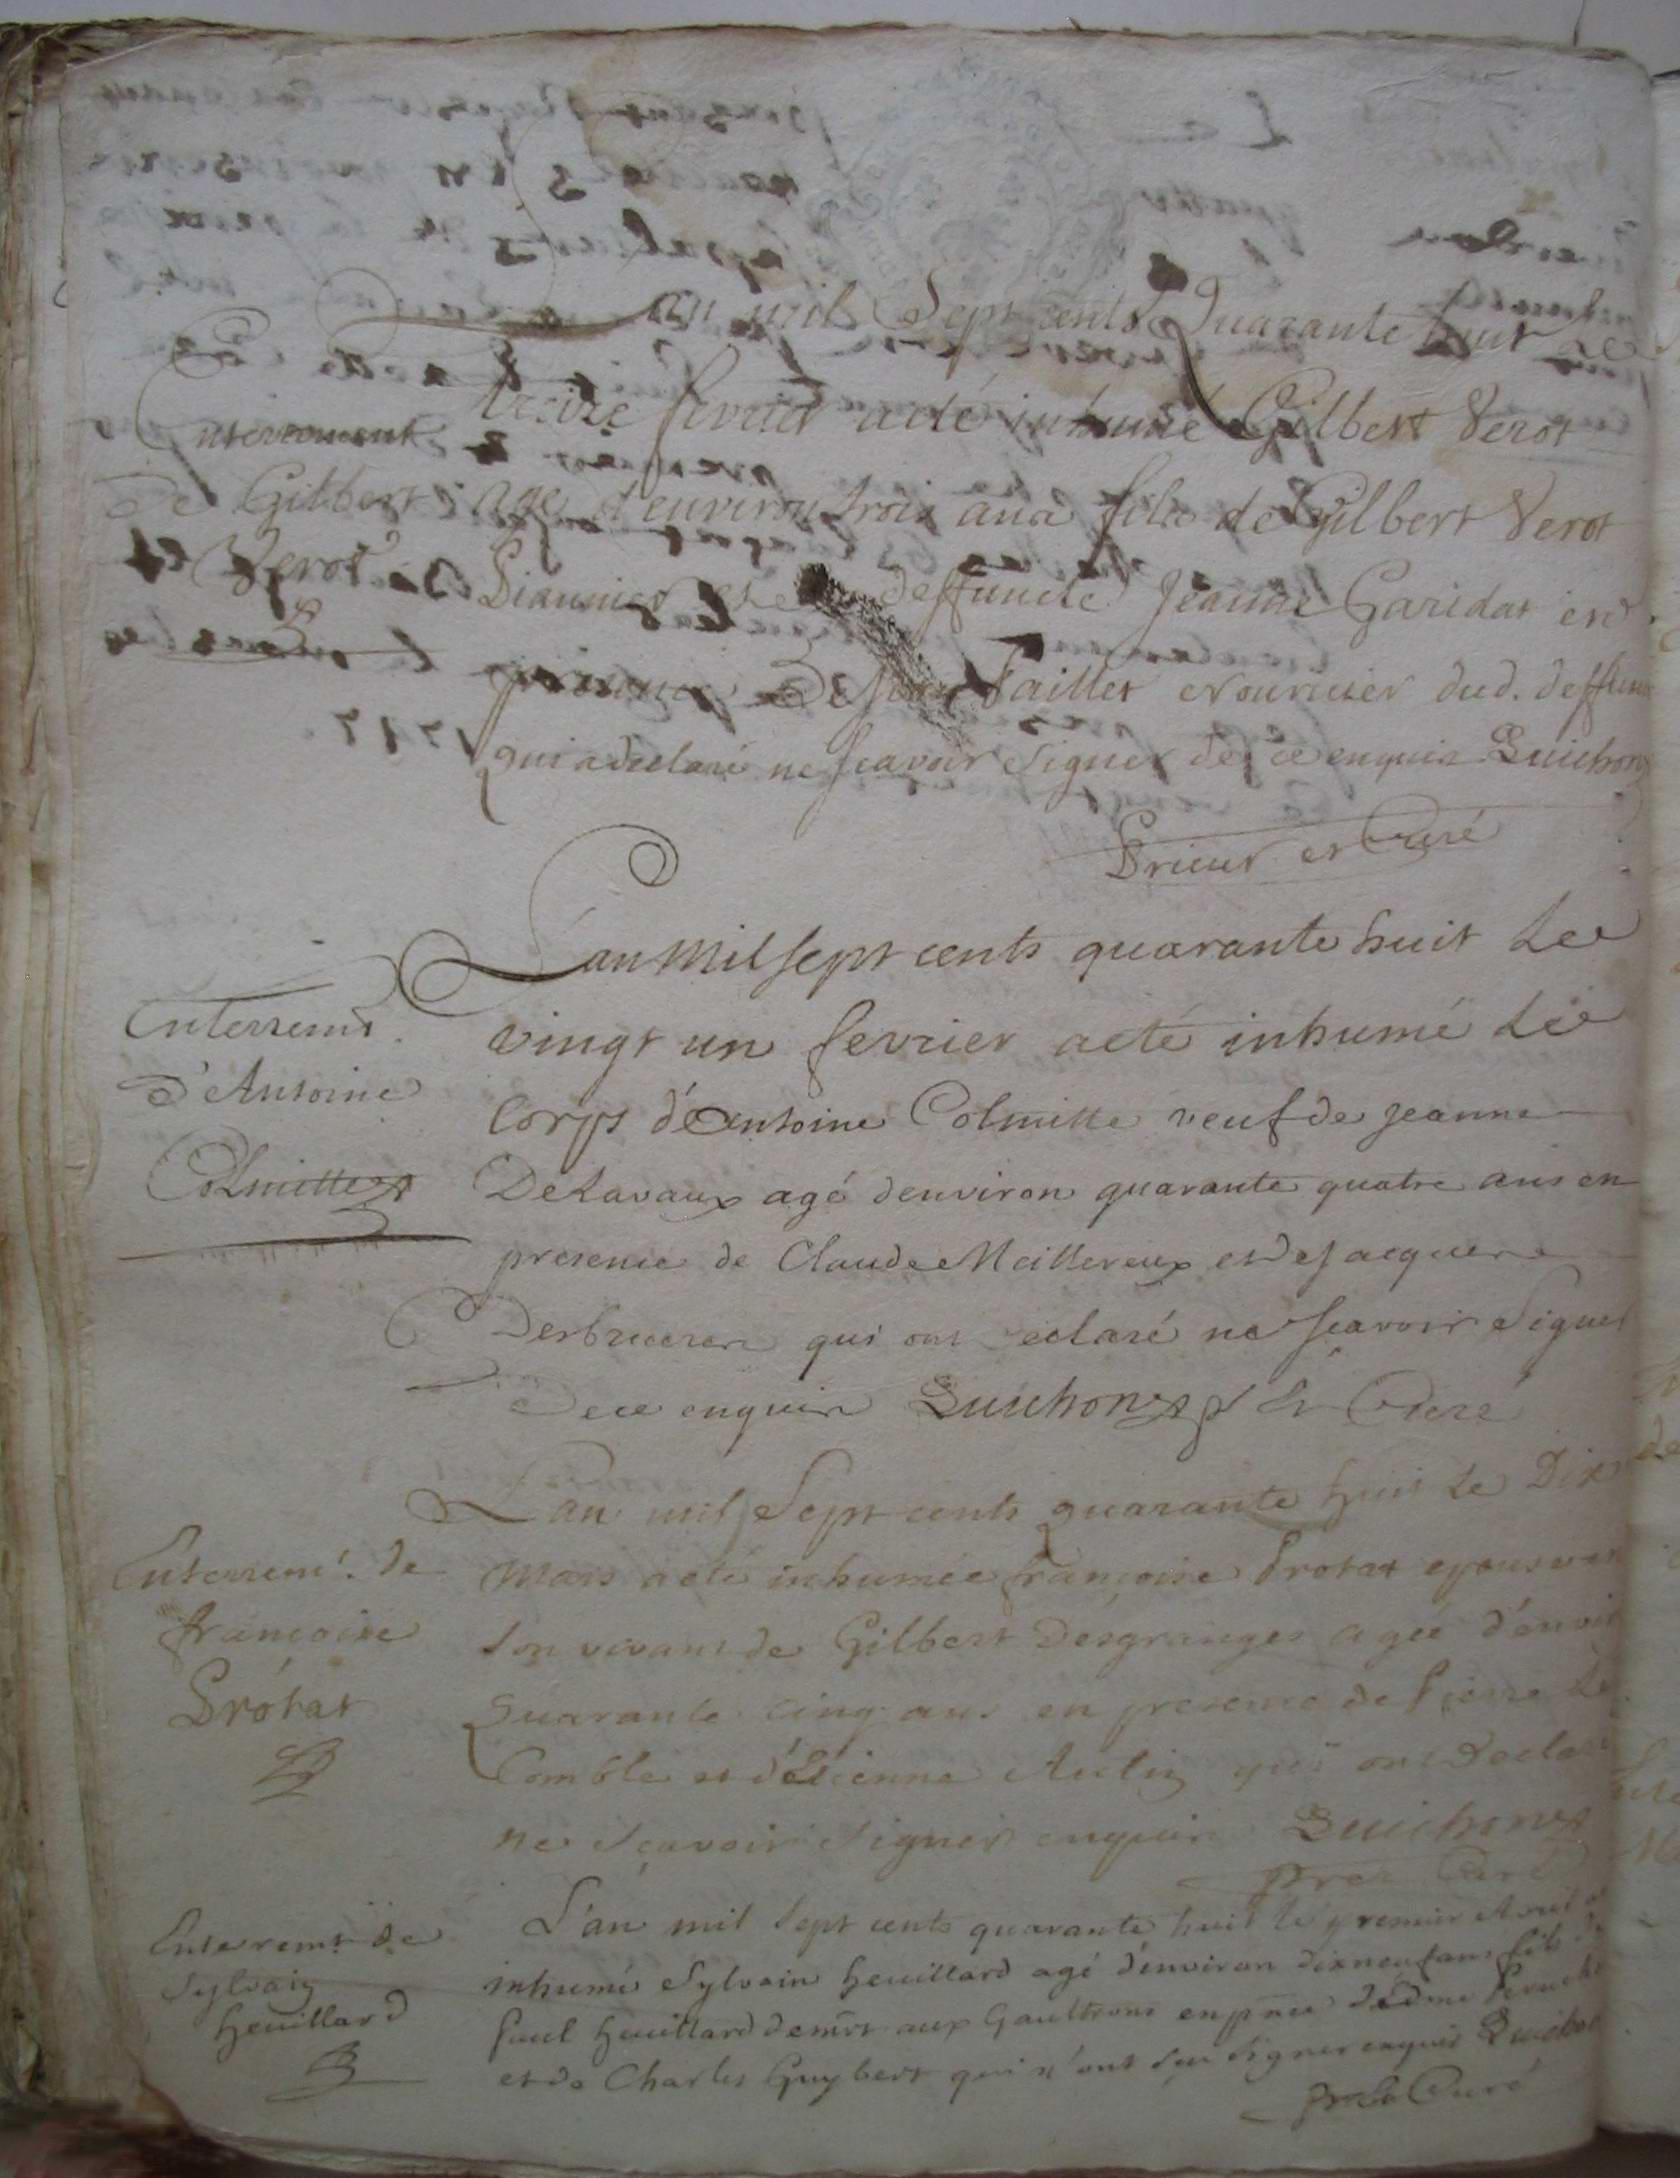 L'an mil Sept cents Quarante huit Le
treize fevrier a eté inhumé Gilbert Verot
Enterement
de Gilbert
Verot
agé d'environ trois ans fils de Gilbert Verot
et deffuncte Jeanne Garidat en
presence de Jean Paillet nourricier dud. deffunt
qui a declaré ne scavoir signer de ce enquis Guichon
Prieur et Curé
L'an Mil sept cents quarante huit Le
vingt un fevrier a eté inhumé Le
Corps d'Antoine Colmitte veuf de jeanne
Delavaux agé denviron quarante quatre ans en
presence de Claude Meillereux et de jacques
qui ont declaré ne scavoir signer
De ce enquis Guichon pr et Curé
Enterremt
d'Antoine
Colmitte
L'an mil Sept cents quarante huit le Dix
Mars a eté inhumée françoise Protat epouse en
son vivant de Gilbert Desgranges agée d'envir
Quarante cinq ans en presence de Pierre La
Comble et d'Etienne qui ont Declaré
ne scavoir signer enquis Guichon
Prer Curé
Enterremt. de
francoise
Protat
L'an mil sept cents quarante huit le premier Avril a eté
inhumé Sylvain heuillard agé d'environ dixneuf ans fils de
Paul heuillard demrt aux Gaultrons en pnce d'Edme
et de Charles Guybert qui n'ont sçu signer enquis Guichon
Curé
Enteremt de
Sylvain
heuillard